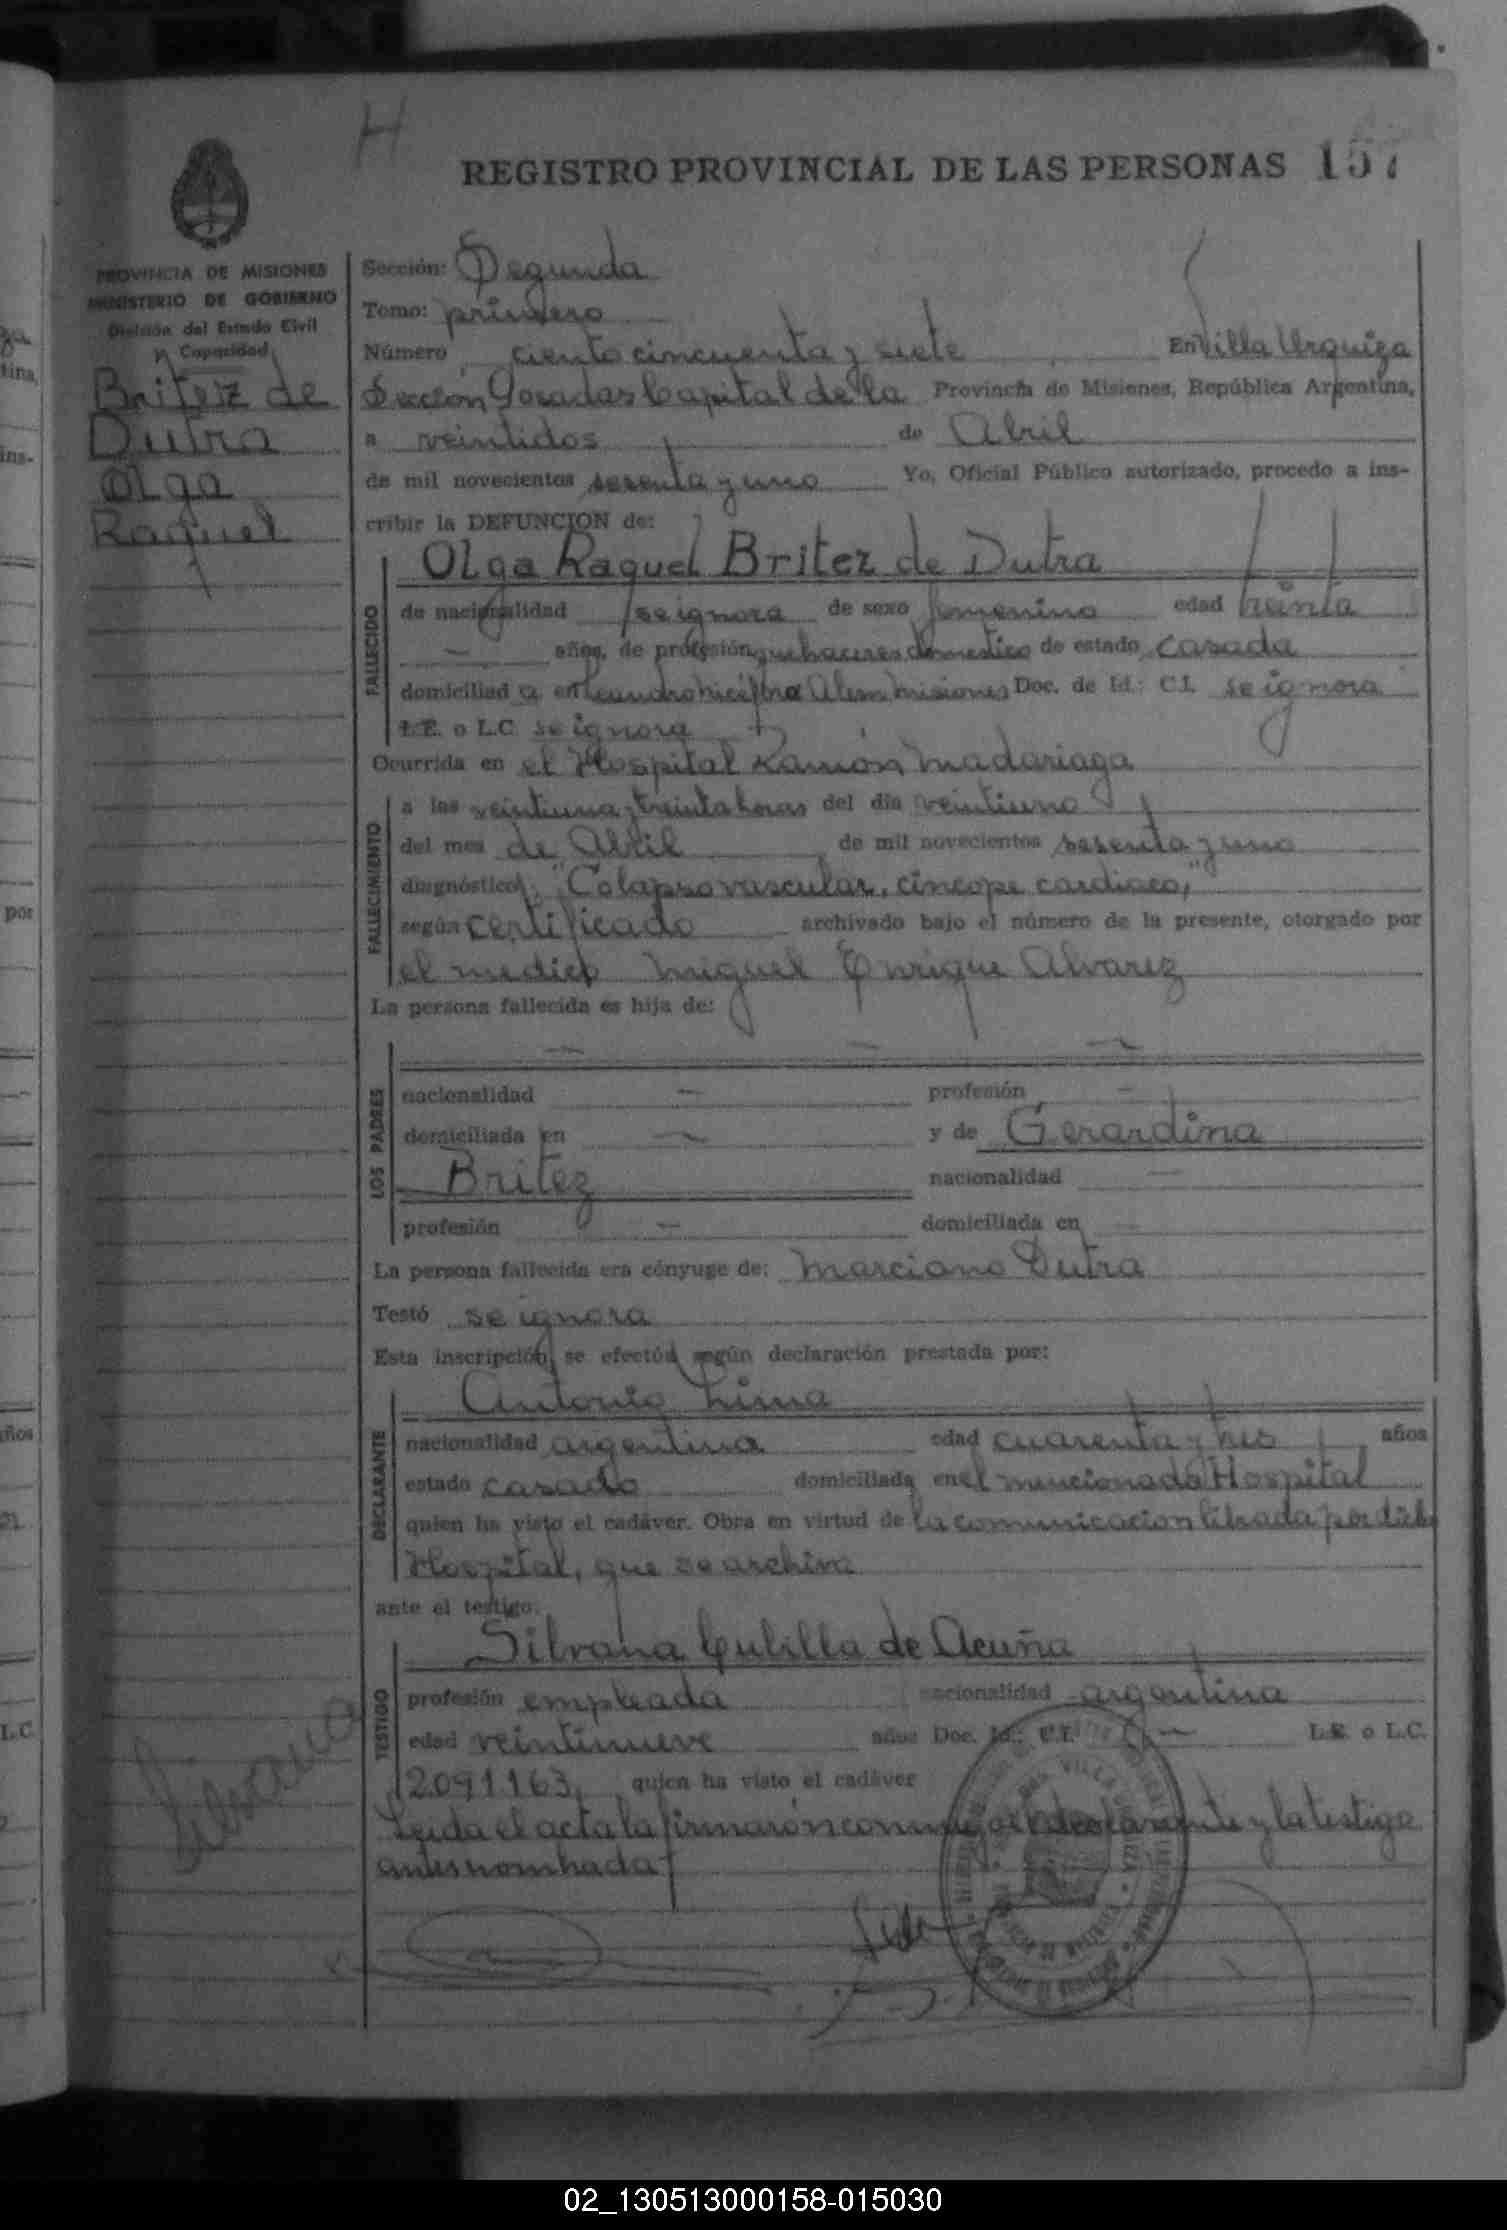 H
REGISTRO PROVINCIAL DE LAS PERSONAS 157
PROVINCIA DE MISIONES
MINISTERIO DE GOBIERNO
División del Estado Civil
y Capacidad
Britez de
Dutra
Olga
Raquel
Sección: Segunda
Tomo: primero
Número ciento cincuenta y siete En Villa Urquiza
Sección Posadas Capital de la Provincia de Misiones, República Argentina,
a veintidos de Abril
de mil novecientos sesenta y uno Yo, Oficial Público autorizado, procedo a ins-
cribir la DEFUNCION de:
Olga Raquel Britez de Dutra
FALLECIDO
de nacionalidad se ignora de sexo femenino edad treinta
— años, de profesión quehaceres domestico de estado casada
domiciliad a en Leandro Alem Misiones Doc. de Id.: C.I. se ignora
L.E. o L.C. se ignora
Ocurrida en el Hospital Ramón Madariaga
FALLECIMIENTO
a las veintiuna y treinta horas del día veintiuno
del mes de Abril de mil novecientos sesenta y uno
diagnóstico: "Colapso vascular, cincope cardiaco,"
según certificado archivado bajo el número de la presente, otorgado por
el medico Miguel Enrique Alvarez
La persona fallecida es hija de:
LOS PADRES
— — —
nacionalidad — profesión —
domiciliada en — y de Gerardina
Britez nacionalidad —
profesión — domiciliada en —
La persona fallecida era cónyuge de: Marciano Dutra
Testó se ignora
Esta inscripción se efectúa según declaración prestada por:
Antonio Lima
DECLARANTE
nacionalidad argentina edad cuarenta y tres años
estado casado domiciliada en el mencionado Hospital
quien ha visto el cadáver. Obra en virtud de la comunicacion librada por dicho
Hospital, que se archiva
ante el testigo:
Silvana Cubilla de Acuña
TESTIGO
profesión empleada nacionalidad argentina
edad veintinueve años Doc. Id.: C.I. — L.E. o L.C.
2091163, quien ha visto el cadáver
Leida el acta la firmaron conmigo el declarante y la testigo
antes nombrada
Silvana
02_130513000158-015030